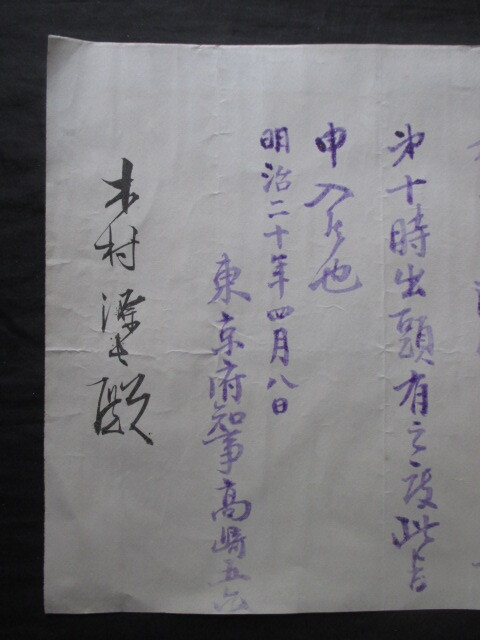 第十時出頭有之度此旨
申入候也
明治二十年四月八日
東京府知事高崎五六
木村 殿